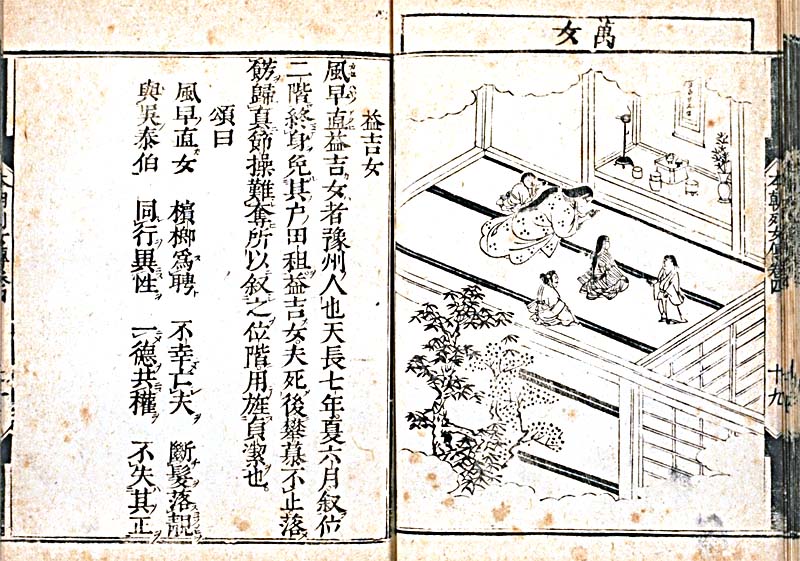 萬女
本朝列女傳卷四 十九
益吉女
風早直益吉女者豫州人也天長七年夏六月叙位
二階終身免其戸田租益吉女夫死後攀慕不止落
餝歸真節操難奪所以叙之位階用旌貞潔也
頌曰
風早直女 檳榔爲聘 不幸亡夫 斷髮落靚
與吳泰伯 同行異性 一德共權 不失其正